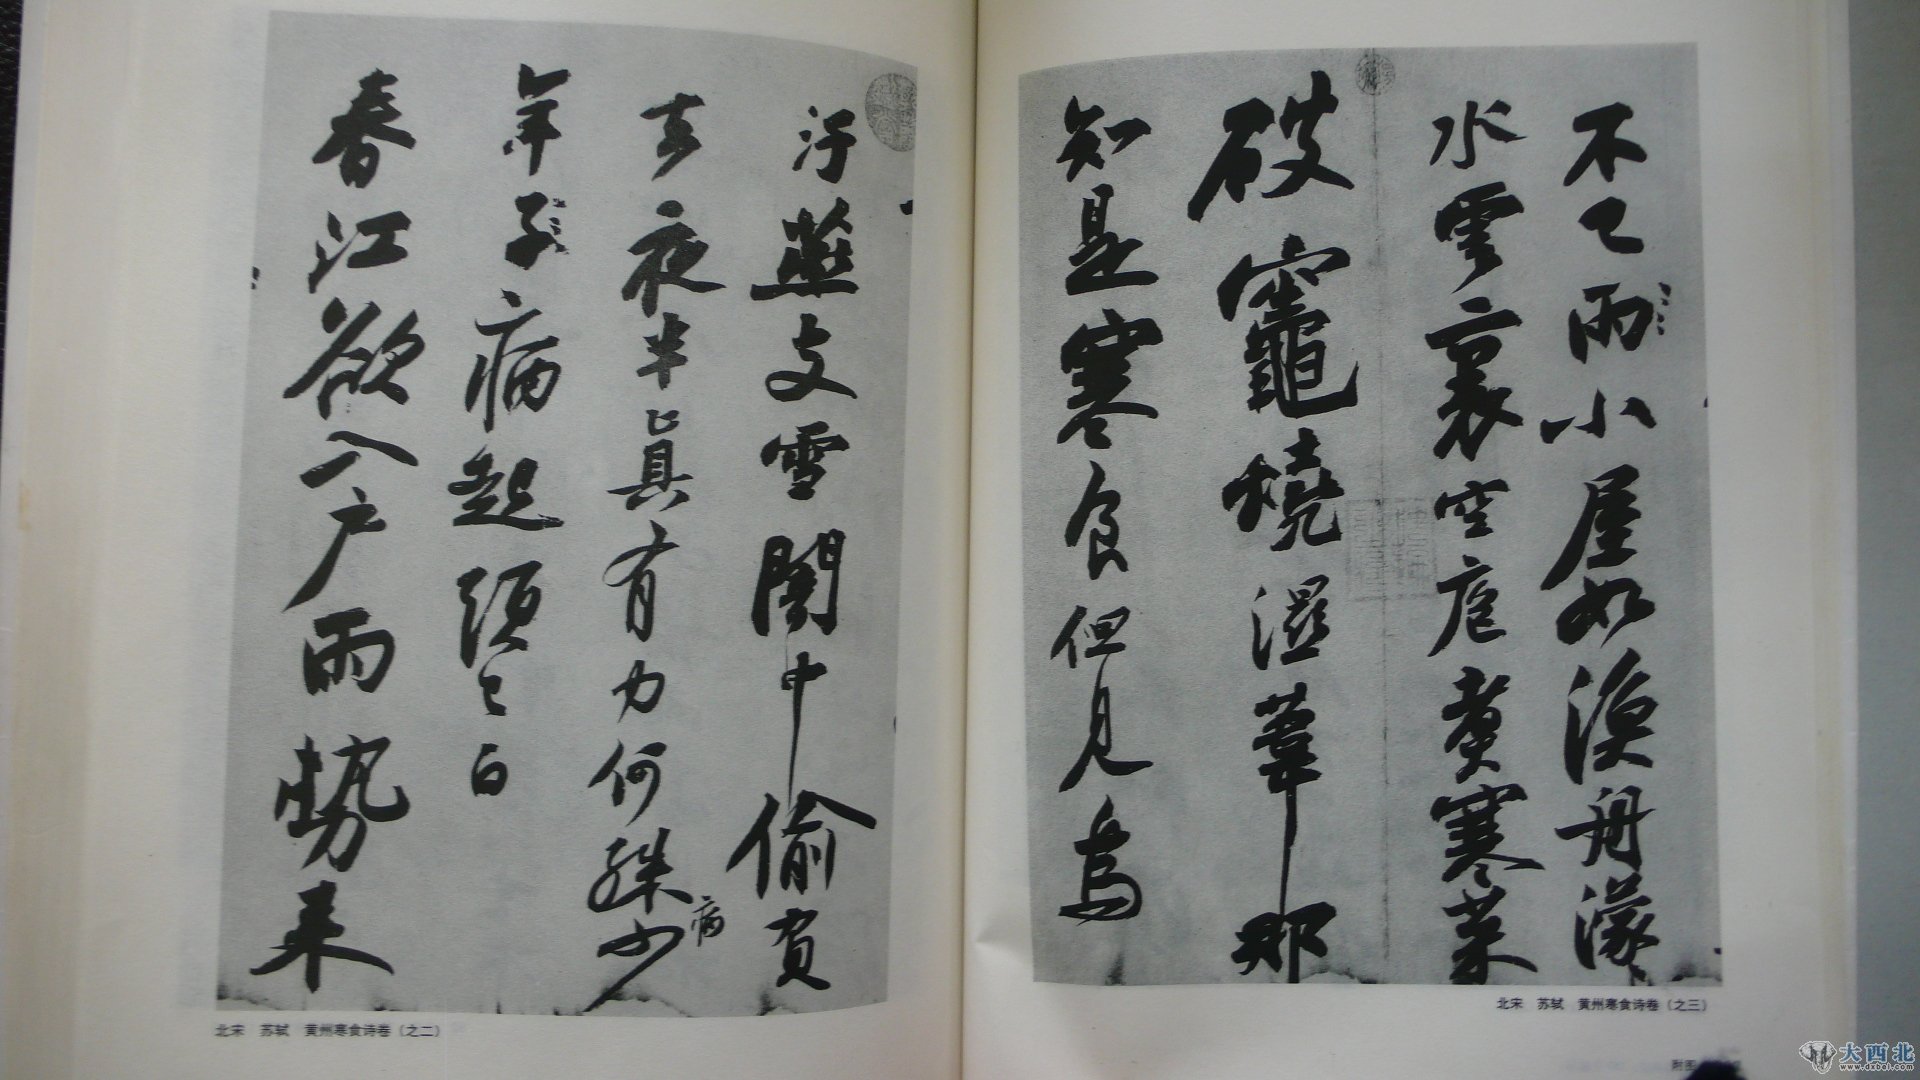 汙燕支雪闇中偷負
去夜半真有力何殊少
病
年子病起須已白
春江欲入戶雨勢来
北宋 苏轼 黄州寒食诗卷（之二）
不已雨小屋如漁舟濛
水雲裏空庖煮寒菜
破竈燒濕葦那
知是寒食但見烏
北宋 苏轼 黄州寒食诗卷（之三）
附图
大西北
www.dxbei.com